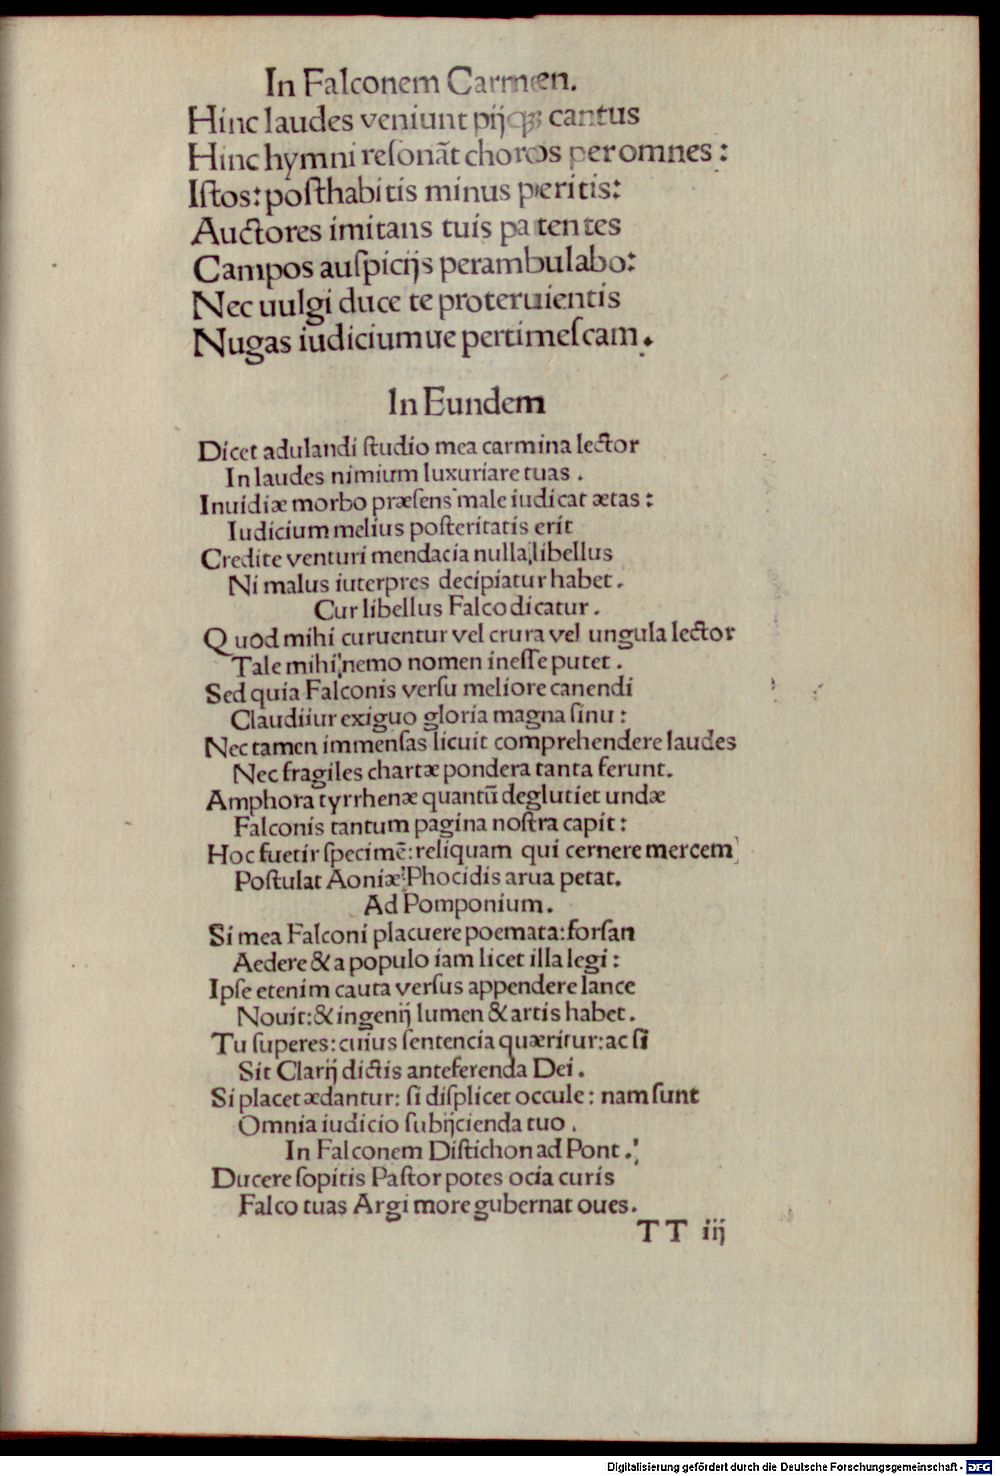 In Falconem Carmen.
Hinc laudes veniunt pijqꝫ cantus
Hinc hymni reſonãt choros per omnes:
Iſtos: poſthabitis minus peritis:
Auctores imitans tuis patentes
Campos auſpicijs perambulabo:
Nec uulgi duce te proteruientis
Nugas iudiciumue pertimeſcam.
In Eundem
Dicet adulandi ſtudio mea carmina lector
In laudes nimium luxuriare tuas.
Inuidiæ morbo præſens male iudicat ætas:
Iudicium melius poſteritatis erit
Credite venturi mendacia nulla libellus
Ni malus iuterpres decipiatur habet.
Cur libellus Falco dicatur.
Quod mihi curuentur vel crura vel ungula lector
Tale mihi nemo nomen ineſſe putet.
Sed quia Falconis verſu meliore canendi
Claudiiur exiguo gloria magna ſinu:
Nec tamen immenſas licuit comprehendere laudes
Nec fragiles chartæ pondera tanta ferunt.
Amphora tyrrhenæ quantũ deglutiet undæ
Falconis tantum pagina noſtra capit:
Hoc fuetir ſpecimẽ: reliquam qui cernere mercem
Poſtulat Aoniæ Phocidis arua petat.
Ad Pomponium.
Si mea Falconi placuere poemata: forſan
Aedere & a populo iam licet illa legi:
Ipſe etenim cauta verſus appendere lance
Novit: & ingenij lumen & artis habet.
Tu ſuperes: cuius ſentencia quæritur: ac ſi
Sit Clarij dictis anteferenda Dei.
Si placet ædantur: ſi diſplicet occule: nam ſunt
Omnia iudicio ſubijcienda tuo.
In Falconem Diſtichon ad Pont.
Ducere ſopitis Paſtor potes ocia curis
Falco tuas Argi more gubernat oues.
TT iij
Digitalisierung gefördert durch die Deutsche Forschungsgemeinschaft - DFG